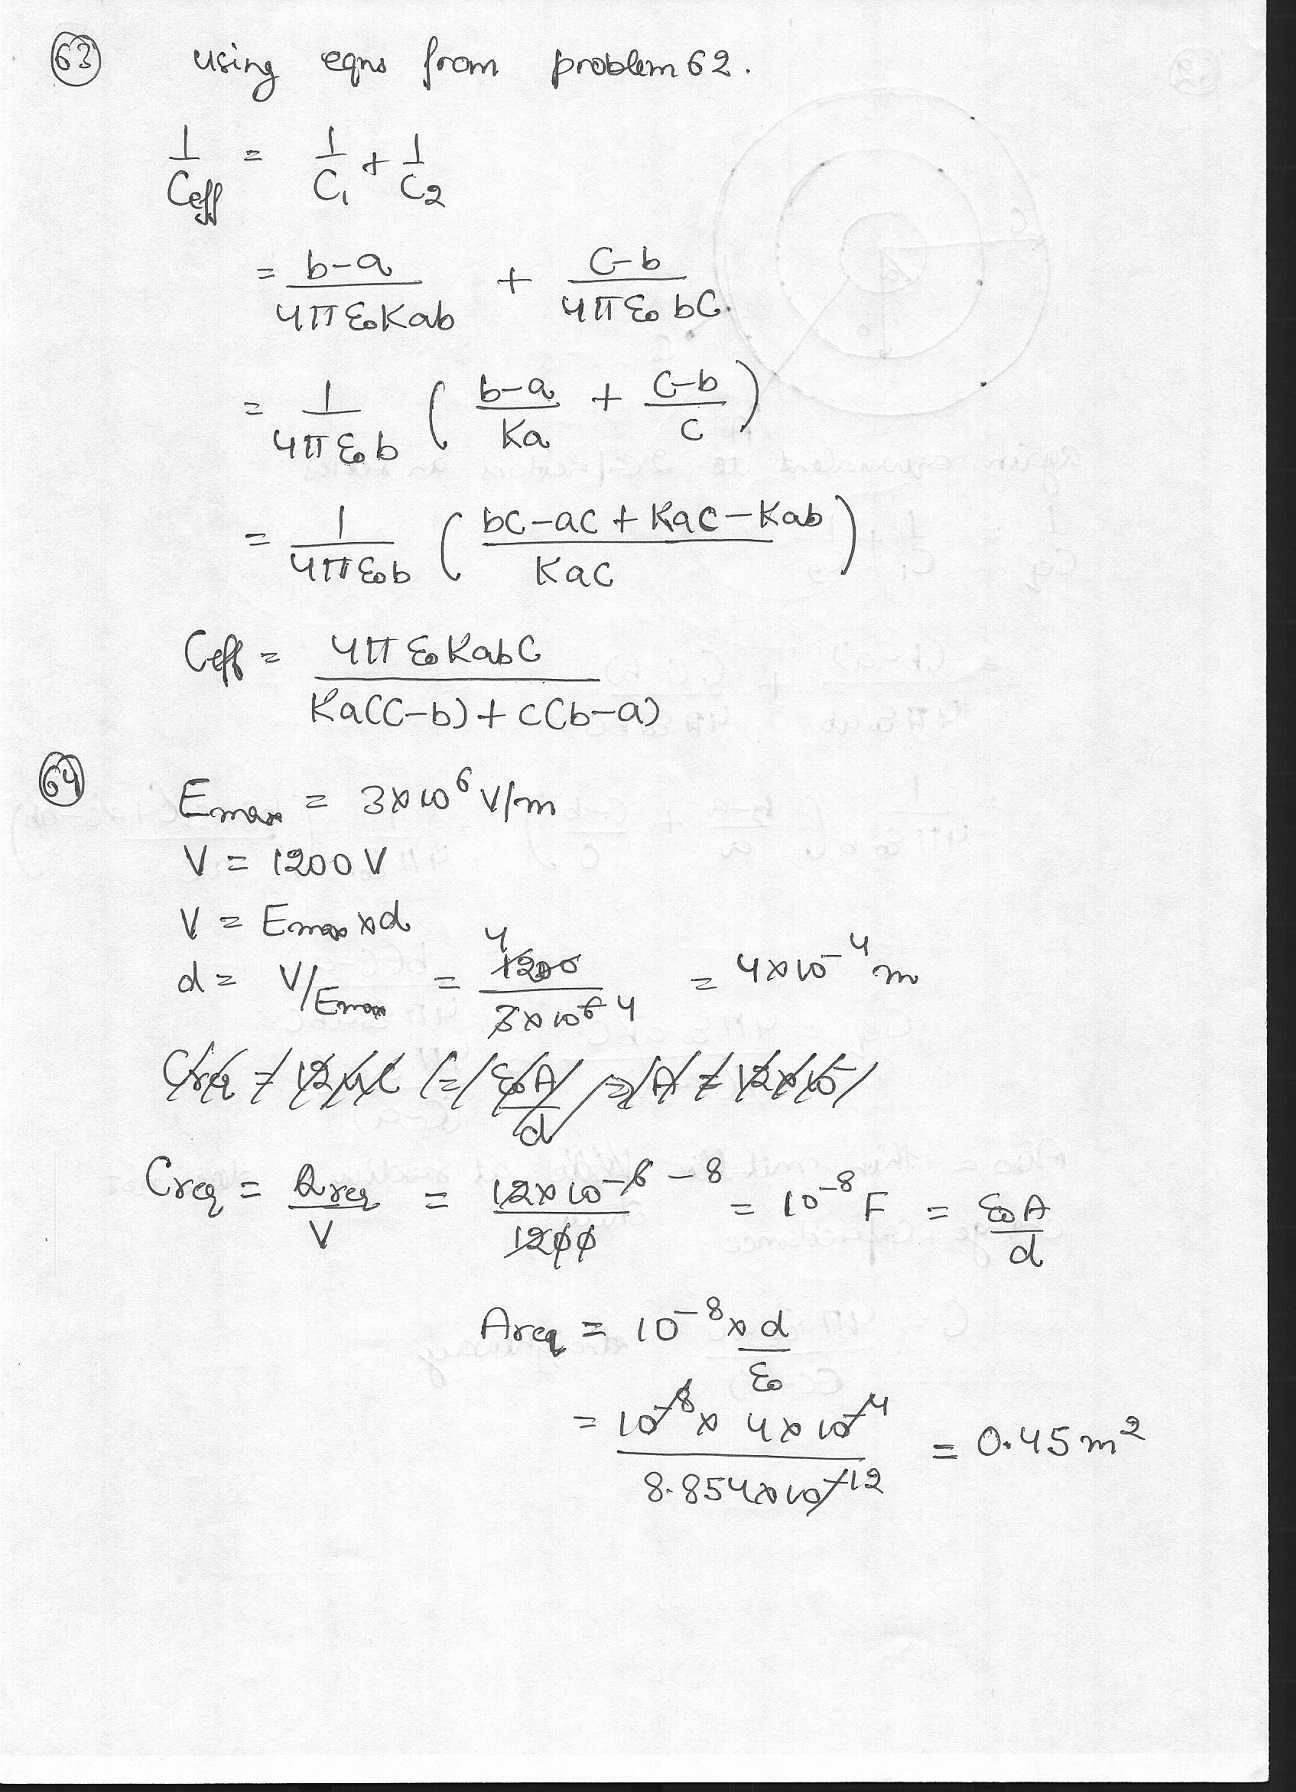 63 using eqns from problem 62.
1/Ceff = 1/C1 + 1/C2
= b-a/4πε0Kab + C-b/4πε0bC.
= 1/4πε0b ( b-a/Ka + C-b/C )
= 1/4πε0b ( bC-aC+KaC-Kab/KaC )
Ceff = 4πε0KabC/Ka(C-b)+C(b-a)
64 Emax = 3×10^6 V/m
V = 1200 V
V = Emax×d
d = V/Emax = 1200/3×10^6 4 = 4×10^-4 m
Creq = Qreq/V = 12×10^-6 -8/1200 = 10^-8 F = ε0A/d
Areq = 10^-8 × d/ε0
= 10^-8 × 4×10^-4/8.854×10^-12 = 0.45 m^2